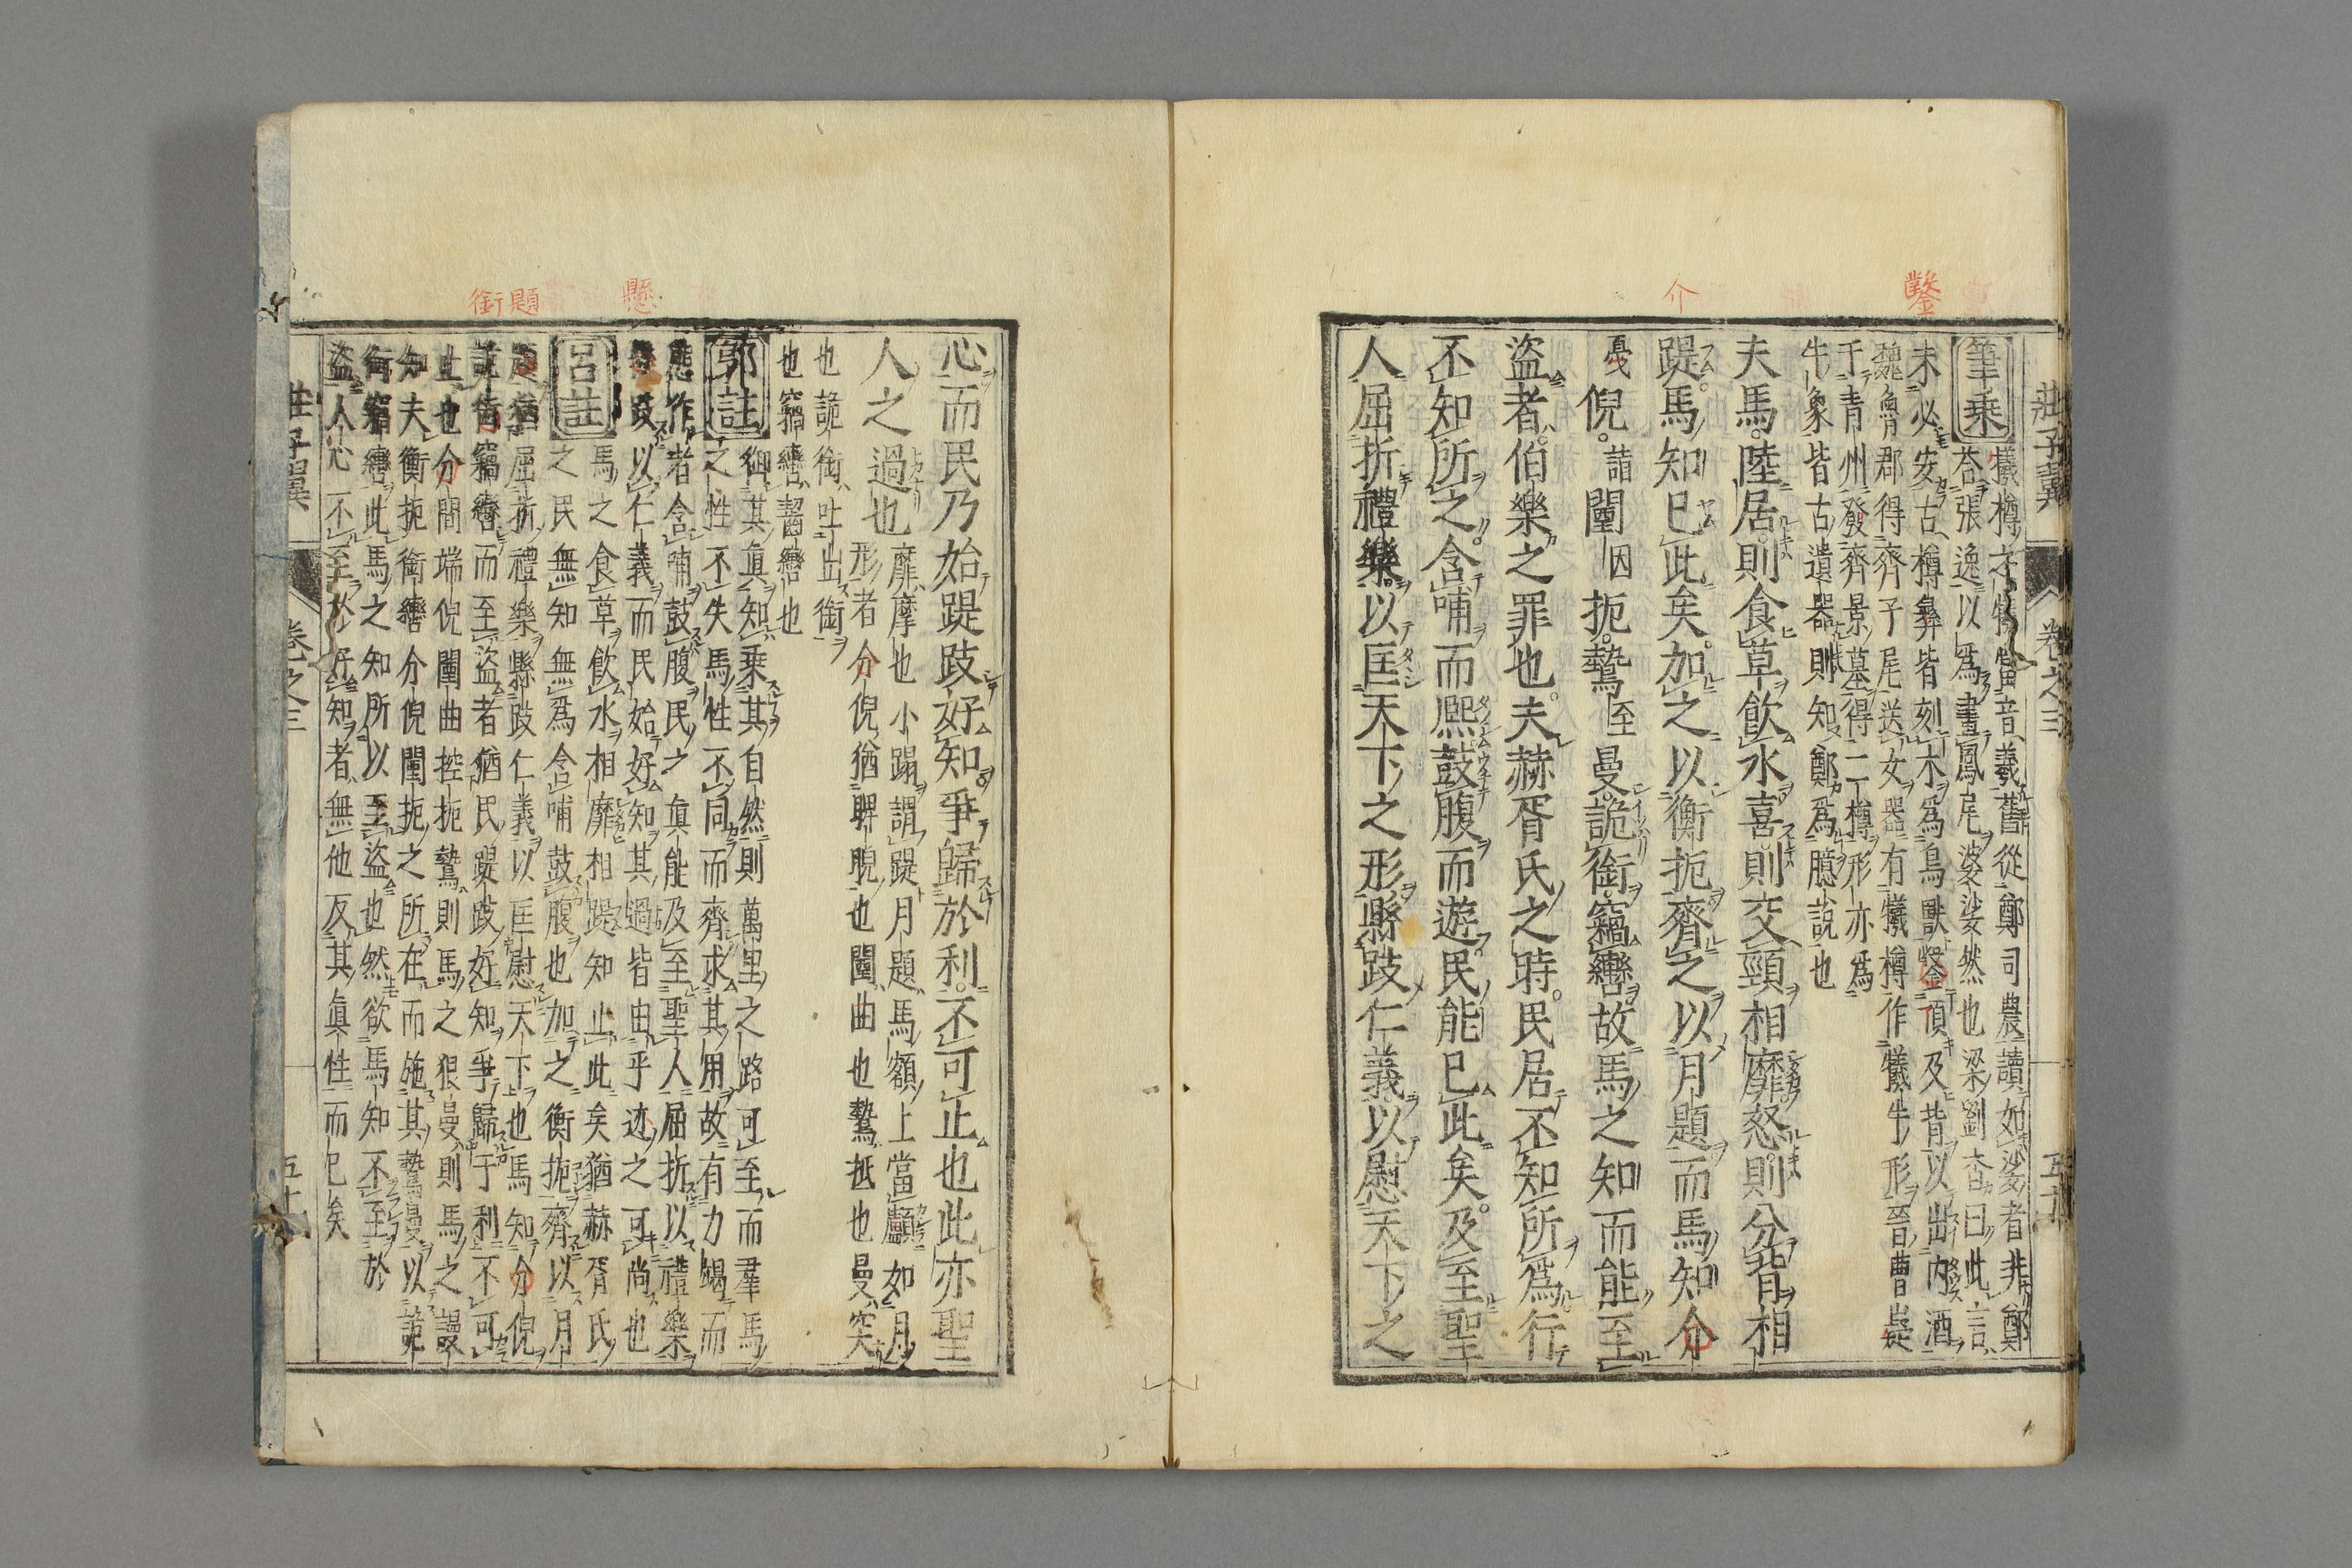 鑿
介
莊子翼 卷之三
筆乘 犧樽之犧當音羲舊從鄭司農讀如娑者非鄭
荅張逸以爲畫鳳尾婆娑然也梁劉杳曰此言
未必安古樽彝皆刻木爲鳥獸鑿頂及背以出內酒
魏魯郡得齊子尾送女器有犧樽作犧牛形晉曹嶷
于青州發齊景墓得二樽形亦爲
牛象皆古遺器則知鄭爲臆說也
夫馬陸居則食草飲水喜則交頸相靡怒則分背相
踶馬知已此矣加之以衡扼齊之以月題而馬知介
倪詣闉因扼鷙至曼詭銜竊轡故馬之知而能至
盜者伯樂之罪也夫赫胥氏之時民居不知所爲行
不知所之含哺而熙鼓腹而遊民能已此矣及至聖
人屈折禮樂以匡天下之形縣跂仁義以慰天下之
懸
題
銜
心而民乃始踶跂好知爭歸於利不可止也此亦聖
人之過也 靡摩也小蹋謂踶月題馬額上當顱如月
形者介倪猶睥睨也闉曲也鷙抵也曼突
也詭銜吐出銜
也竊轡齧轡也
郭註 御其眞知乘其自然則萬里之路可至而羣馬
之性不失 馬性不同而齊求其用故有力竭而
態作者 含哺鼓腹民之眞能及至聖人屈折以禮樂
跂以仁義而民始好知其過皆由乎迹之可尚也
呂註 馬之食草飲水相靡相踶知止此矣猶赫胥氏
之民無知無爲含哺鼓腹也加之衡扼齊以月
題猶屈折禮樂縣跂仁義以匡慰天下也馬知介倪
詭銜竊轡而至盜者猶民踶跂好知爭歸于利不可
止也介間端倪闉曲控扼鷙則馬之狠曼則馬之謾
知夫衡扼銜轡介倪闉扼之所在而施其鷙曼以詭
銜竊轡此馬之知所以至盜也然欲馬知不至於
盜人心不至於好知者無他反其眞性而已矣
莊子翼 卷之三